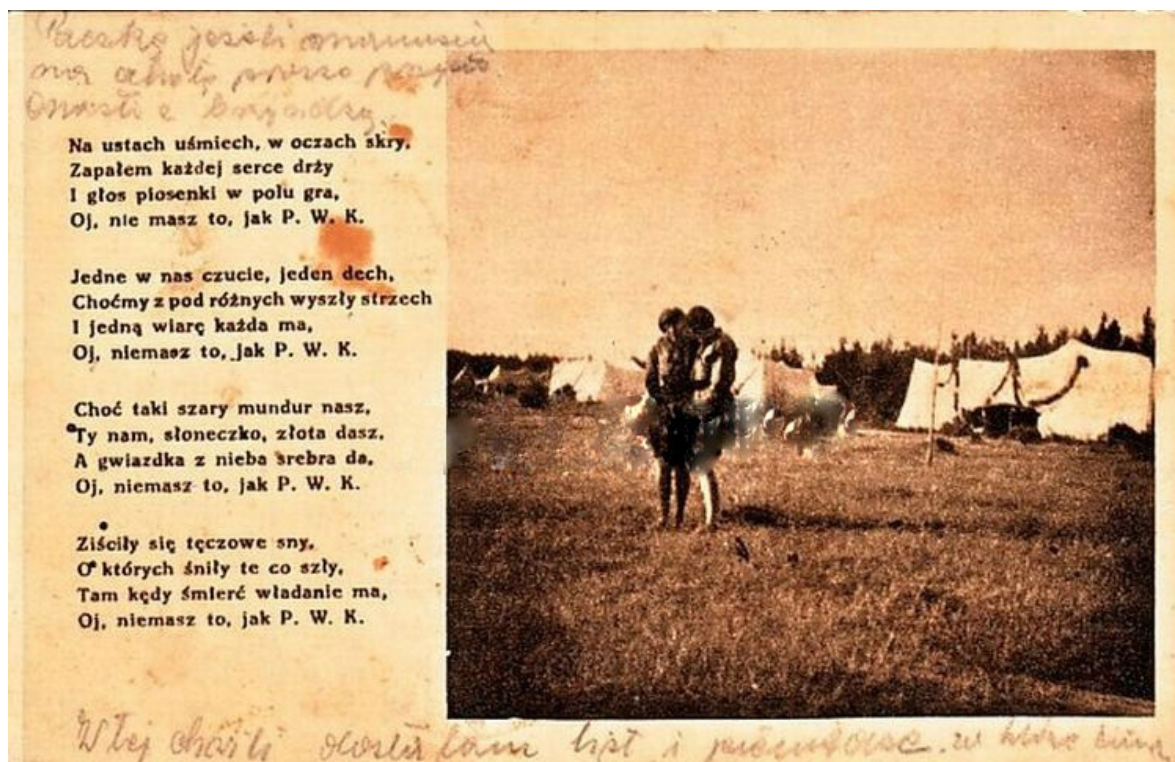 Paczkę jeżeli mamusia
na proszę
Na ustach uśmiech, w oczach skry,
Zapałem każdej serce drży
I głos piosenki w polu gra,
Oj, nie masz to, jak P. W. K.
Jedne w nas czucie, jeden dech,
Choćmy z pod różnych wyszły strzech
I jedną wiarę każda ma,
Oj, niemasz to, jak P. W. K.
Choć taki szary mundur nasz,
Ty nam, słoneczko, złota dasz,
A gwiazdka z nieba srebra da,
Oj, niemasz to, jak P. W. K.
Ziściły się tęczowe sny,
O których śniły te co szły,
Tam kędy śmierć władanie ma,
Oj, niemasz to, jak P. W. K.
W tej chwili dostałam list i pieniądze w